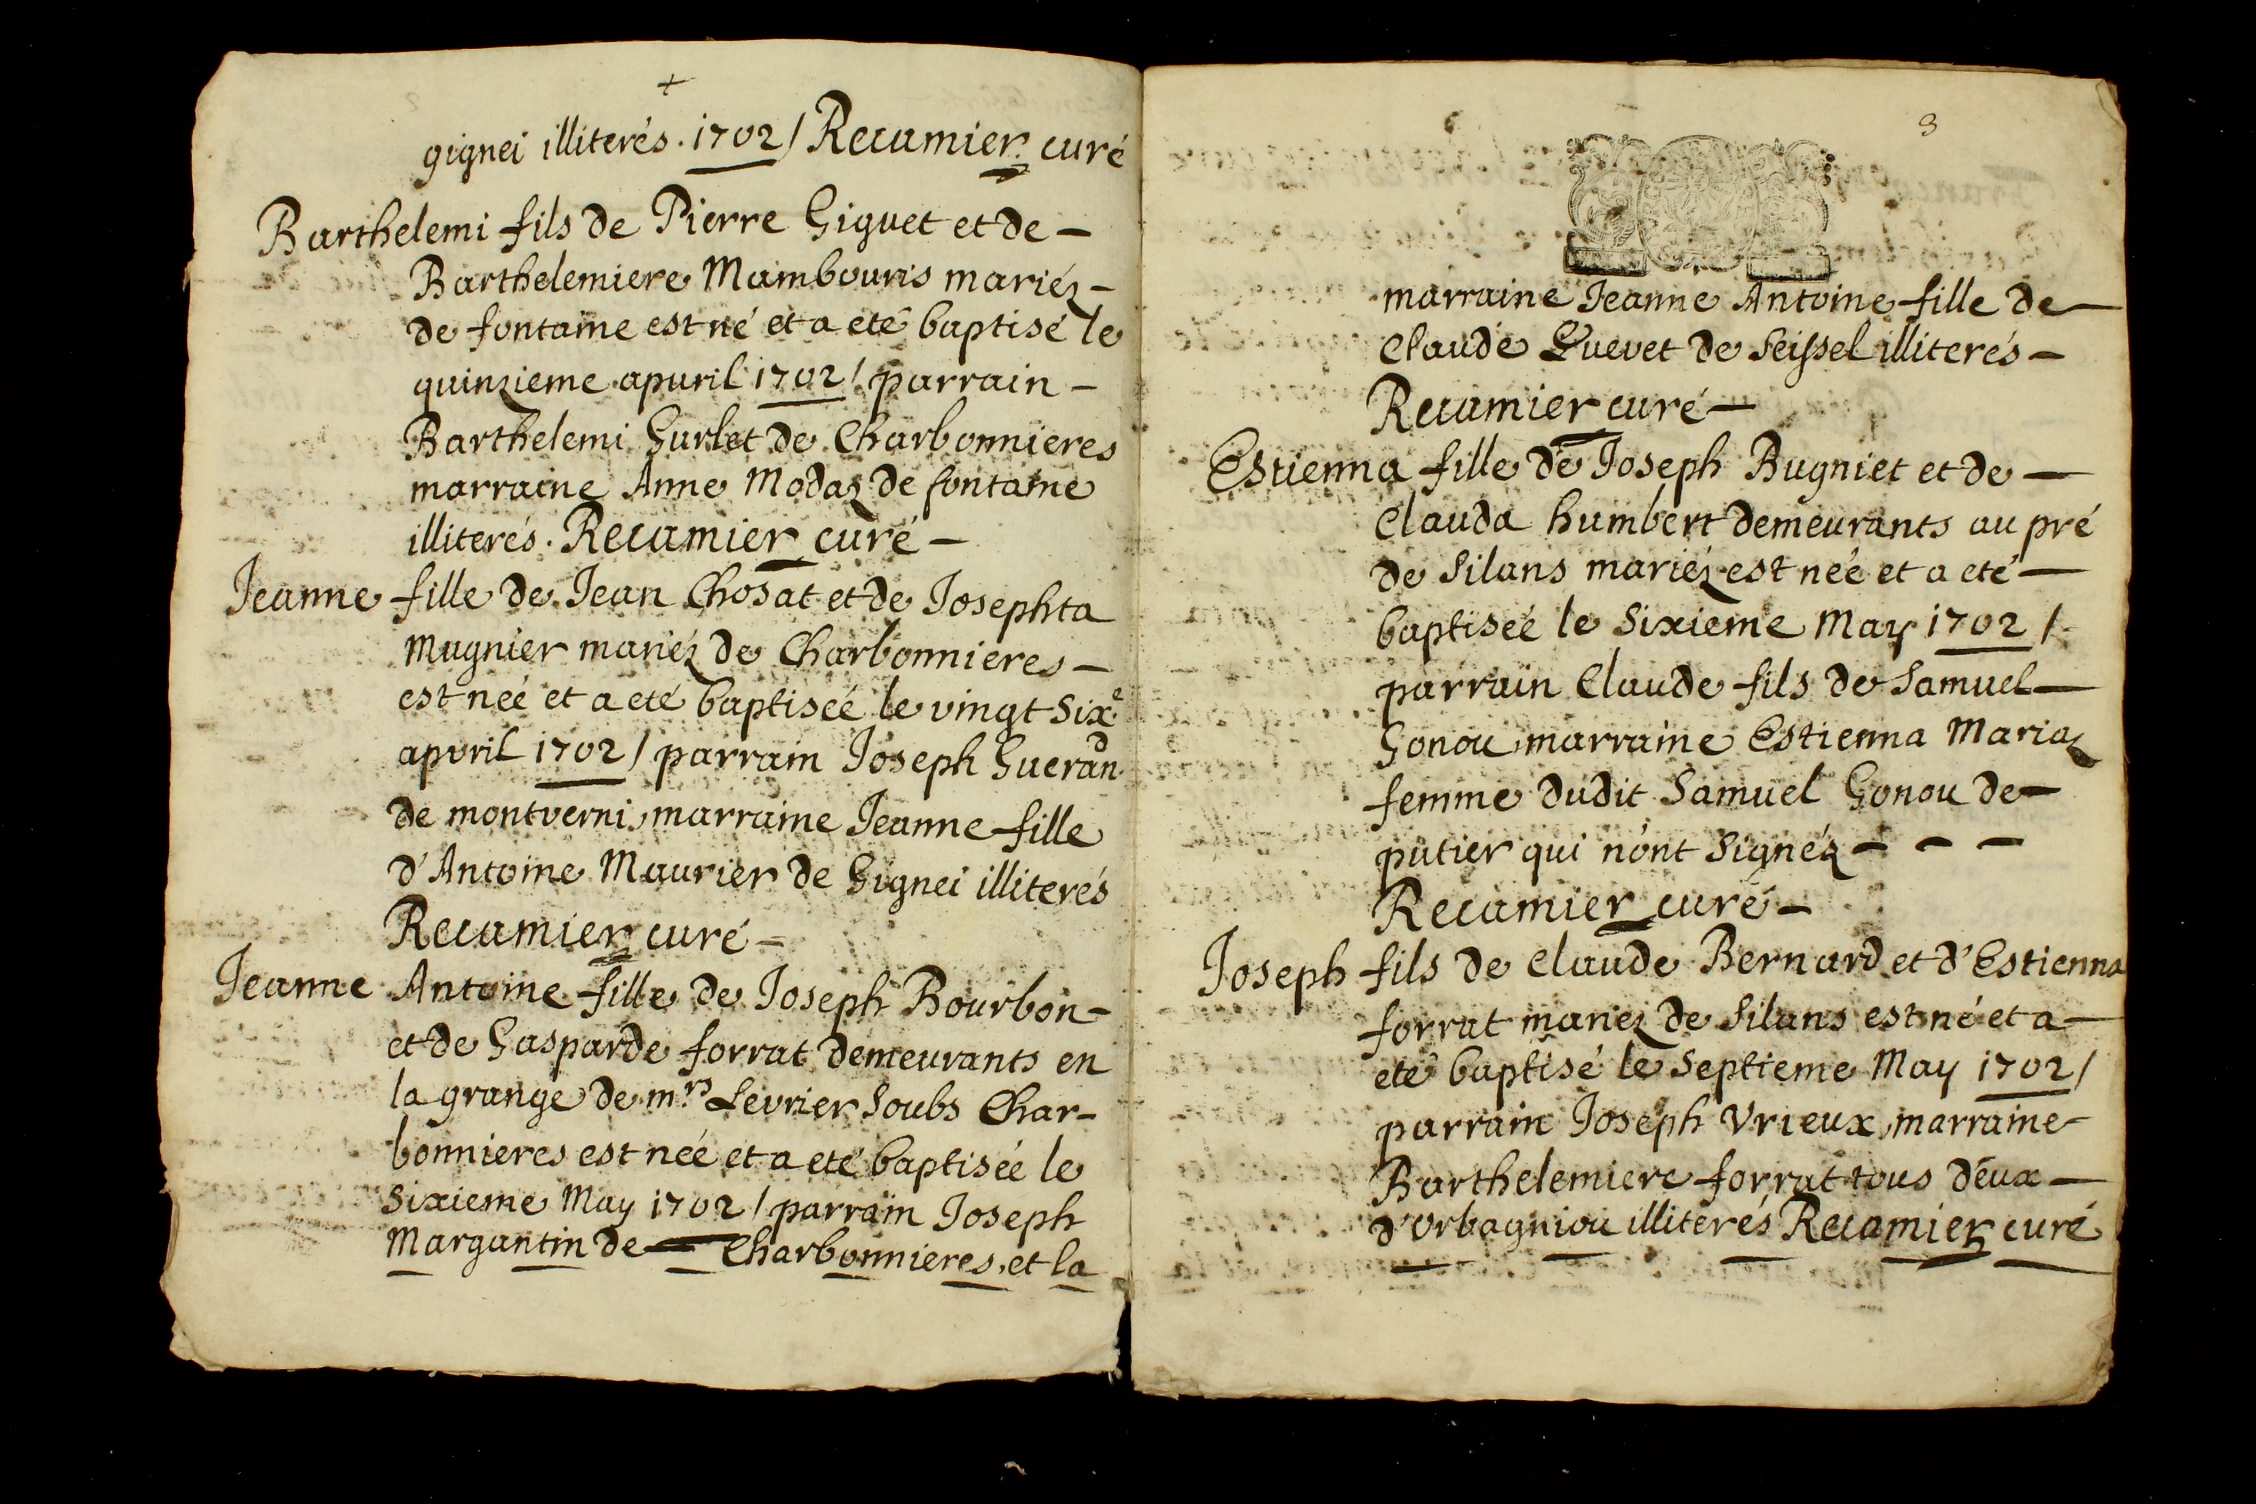 +
gignei illiterés. 1702 / Recamier curé
Barthelemi fils de Pierre Giguet et de —
Barthelemiere Mambouris mariéz —
de fontaine est né et a eté baptisé le
quinzieme apuril 1702 / parrain —
Barthelemi Gurlet de Charbonnieres
marraine Anne Modaz de fontaine
illiterés. Recamier curé —
Jeanne fille de Jean Chosat et de Josephta
Mugnier mariéz de Charbonnieres —
est neé et a eté baptiseé le vingt Six.e
apvril 1702 / parrain Joseph Guerand
de montverni, marraine Jeanne fille
d'Antoine Maurier de Gignei illiterés
Recamier curé —
Jeanne Antoine fille de Joseph Bourbon —
et de Gasparde forrat demeurants en
la grange de m.rs Levrier Soubs Char-
bonnieres est neé et a eté baptiseé le
Sixieme May 1702 / parrain Joseph
Margantin de — Charbonnieres, et la
3
marraine Jeanne Antoine fille de —
Claude de Seissel illiterés —
Recamier curé —
Estienna fille de Joseph Bugniet et de —
Clauda humbert demeurants au pré
de Silans mariéz est neé et a eté —
baptiseé le Sixieme May 1702 /
parrain Claude fils de Samuel —
Gonou, marraine Estienna Mariaz
femme dudit Samuel Gonou de —
putier qui n'ont Signéz — — —
Recamier curé —
Joseph fils de Claude Bernard et d'Estienna
forrat mariéz de Silans est né et a —
eté baptisé le Septieme May 1702 /
parrain Joseph Vrieux, marraine
Barthelemiere forrat tous deux —
d'Orbagniou illiterés Recamier curé